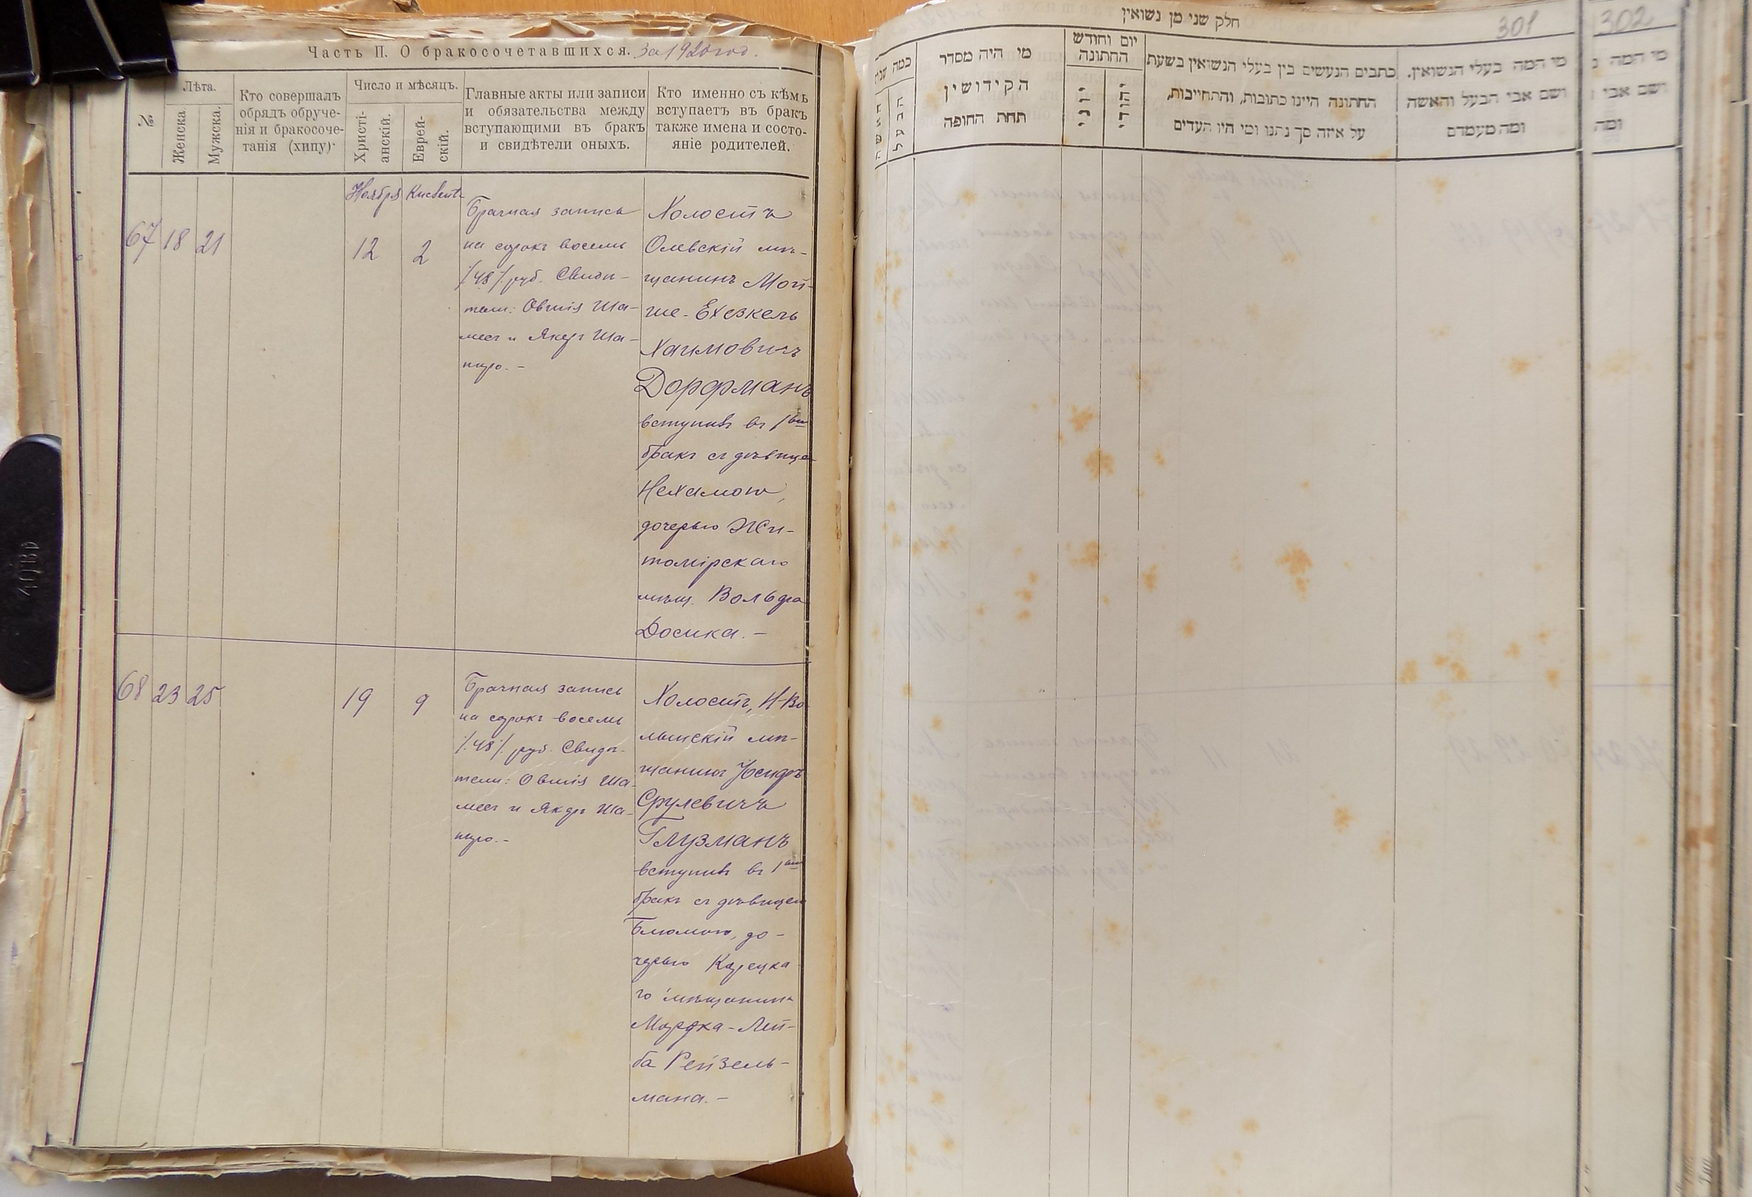 Часть II. О бракосочетавшихся. За 1920 год.
№
Лѣта.
Женска.
Мужска.
Кто совершалъ
обрядъ обруче-
нія и бракосоче-
танія (хипу)
Число и мѣсяцъ.
Христі-
анскій.
Еврей-
скій.
Главные акты или записи
и обязательства между
вступающими въ бракъ
и свидѣтели оныхъ.
Кто именно съ кѣмъ
вступаетъ въ бракъ
также имена и состо-
яніе родителей.
Ноября
67 18 21
12 2
Брачная запись
на сорокъ восемь
/48/ руб. Свидѣ-
тели: Овшія Ша-
мес и Якер Ша-
пиро.-
Холостъ
Олевскій мѣ-
щанинъ Мой-
ше-Ехезкель
Хаимовичъ
Дорфманъ
вступилъ въ 1ый
бракъ съ дѣвицею
Нехамою,
дочерью Жи-
томірскаго
мѣщ. Вольфа
Досика.-
68 23 25
19 9
Брачная запись
на сорокъ восемь
/48/ руб. Свидѣ-
тели: Овшія Ша-
мес и Якер Ша-
пиро.-
Холостъ, Н-Во-
лынскій мѣ-
щанинъ Іосифъ
Срулевичъ
Глузманъ
вступилъ въ 1ый
бракъ съ дѣвицею
Блюмою, до-
черью Корецка-
го мѣщанина
Мордка-Лей-
ба Рейзель-
мана.-
חלק שני מן נשואין
301
302
כמה שנים
האשה
הבעל
מי היה מסדר
הקידושין
תחת החופה
יום וחודש
החתונה
יוני
יהודי
כתבים הנעשים בין בעלי הנשואין בשעת
החתונה היינו כתובות, והתחייבות,
על איזה סך נתנו ומי היו העדים
מי המה בעלי הנשואין.
ושם אבי הבעל והאשה
ומה מעמדם
מי המה
ושם אבי
ומה